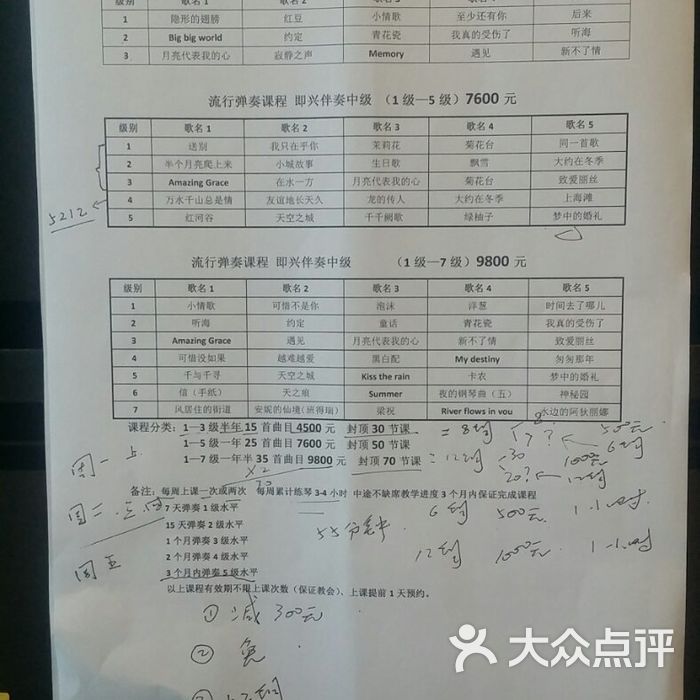 级别 歌名1 歌名2 歌名3 歌名4 歌名5
1 隐形的翅膀 红豆 小情歌 至少还有你 后来
2 Big big world 约定 青花瓷 我真的受伤了 听海
3 月亮代表我的心 寂静之声 Memory 遇见 新不了情
流行弹奏课程 即兴伴奏中级 (1级—5级)7600元
级别 歌名1 歌名2 歌名3 歌名4 歌名5
1 送别 我只在乎你 茉莉花 菊花台 同一首歌
2 半个月亮爬上来 小城故事 生日歌 飘雪 大约在冬季
3 Amazing Grace 在水一方 月亮代表我的心 菊花台 致爱丽丝
4 万水千山总是情 友谊地长天久 龙的传人 大约在冬季 上海滩
5212
5 红河谷 天空之城 千千阙歌 绿柚子 梦中的婚礼
流行弹奏课程 即兴伴奏中级 (1级—7级)9800元
级别 歌名1 歌名2 歌名3 歌名4 歌名5
1 小情歌 可惜不是你 泡沫 洋葱 时间去了哪儿
2 听海 约定 童话 青花瓷 我真的受伤了
3 Amazing Grace 遇见 月亮代表我的心 新不了情 致爱丽丝
4 可惜没如果 越难越爱 黑白配 My destiny 匆匆那年
5 千与千寻 天空之城 Kiss the rain 卡农 梦中的婚礼
6 信(手纸) 天之痕 Summer 夜的钢琴曲(五) 神秘园
7 风居住的街道 安妮的仙境(班得瑞) 梁祝 River flows in vou 水边的阿狄丽娜
课程分类:1—3级半年15首曲目4500元 封顶30节课 =8 17? 500元
1—5级一年25首曲目7600元 封顶50节课 6
1—7级一年半35首曲目9800元 封顶70节课 =12 30 1000元
周一上 ×2 20? 12
备注:每周上课一次或两次 每周累计练琴3-4小时 中途不缺席教学进度3个月内保证完成课程
周二.三.四 7天弹奏1级水平 6 500元 1小时
15天弹奏2级水平 55分钟
1个月弹奏3级水平
周五 2个月弹奏4级水平 12 1000元 1小时
3个月内弹奏5级水平
以上课程有效期不限上课次数(保证教会)、上课提前1天预约。
① 减300元
② 免
大众点评